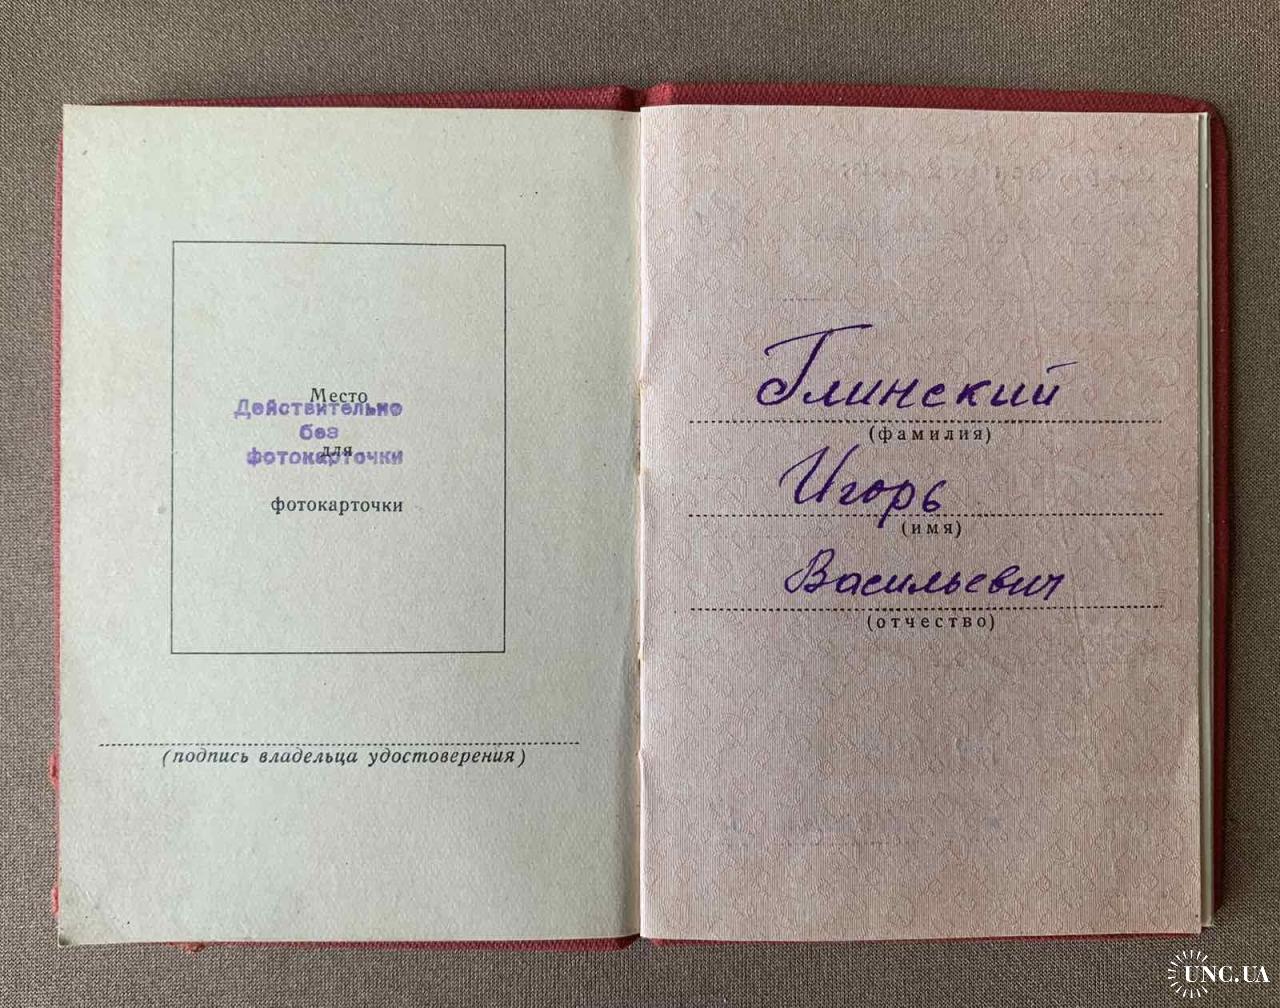 Место
Действительно
без
для
фотокарточки
фотокарточки
(подпись владельца удостоверения)
Глинский
(фамилия)
Игорь
(имя)
Васильевич
(отчество)
UNC.UA